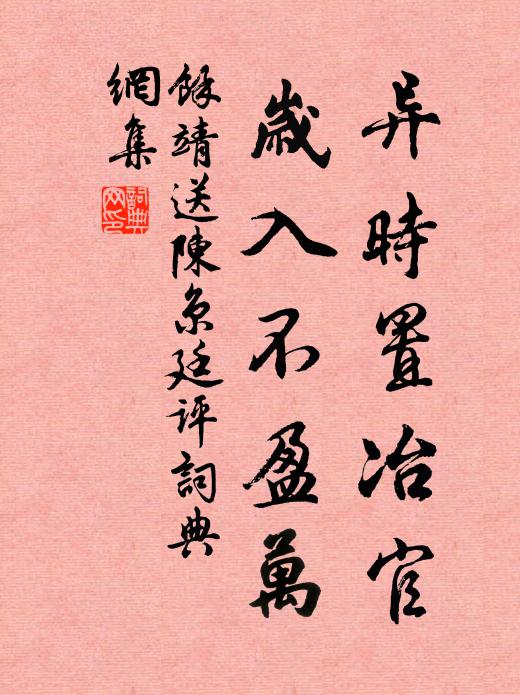 异時置冶官
歲入不盈萬
餘靖送陳京廷評詞典
網集
詞典網印